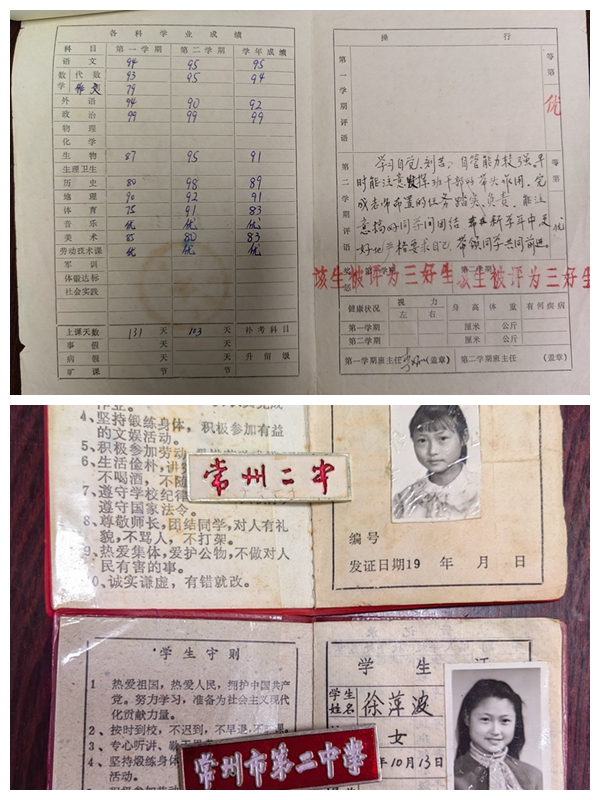 各科学业成绩
科目 第一学期 第二学期 学年成绩
语文 94 95 95
数学 代数 93 95 94
79
外语 94 90 92
政治 99 99 99
物理
化学
生物 87 95 91
生理卫生
历史 80 98 89
地理 90 92 91
体育 75 91 83
音乐 优 优 优
美术 85 80 83
劳动技术课 优 优 优
军训
体锻达标
社会实践
上课天数 131 天 103 天 补考科目
事假 天 天
病假 天 天 升留级
旷课 节 节
操行
第一学期评语 等第 优
第二学期评语 等第 优
学习自觉、刻苦,自管能力较强,平
时能注意发挥班干部的带头作用。完
成老师布置的任务踏实、负责。能注
意搞好同学间团结。希在新学年中更
好地严格要求自己,带领同学共同前进。
奖惩 第一学期 第二学期
该生被评为三好生 该生被评为三好生
健康状况 视力 左 右 身高 体重 有何疾病
第一学期 厘米 公斤
第二学期 厘米 公斤
第一学期班主任 (盖章) 第二学期班主任 (盖章)
4、坚持锻练身体,积极参加有益
的文娱活动。
5、积极参加劳动
6、生活俭朴,讲
不喝酒,不随
7、遵守学校纪律
遵守国家法令。
8、尊敬师长,团结同学,对人有礼
貌,不骂人,不打架。
9、热爱集体,爱护公物,不做对人
民有害的事。
0、诚实谦虚,有错就改。
常州二中
编号
发证日期19 年 月 日
学生守则
1 热爱祖国,热爱人民,拥护中国共产
党。努力学习,准备为社会主义现代
化贡献力量。
2、按时到校,不迟到,不早退,不旷课。
3、专心听讲,
4、坚持锻炼身体
活动。
常州市第二中学
学生证
学生姓名 徐萍波
女
年10月13日